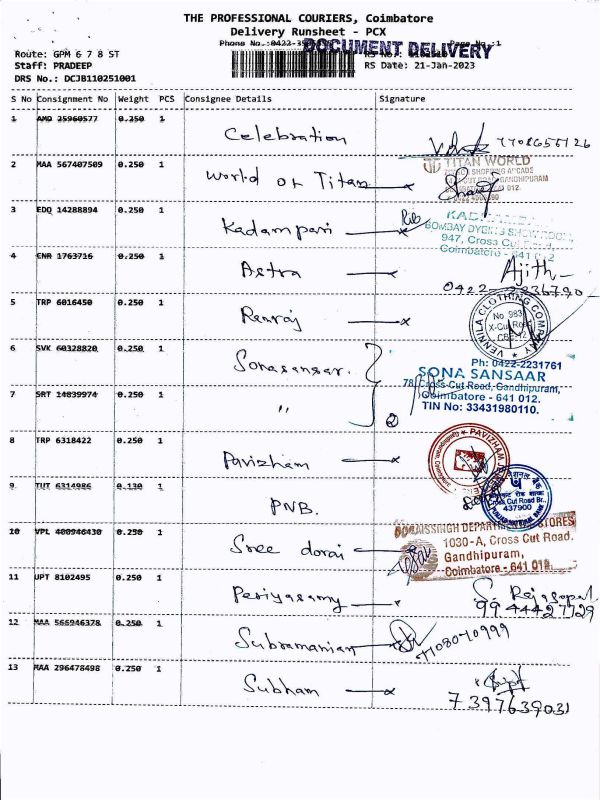 THE PROFESSIONAL COURIERS, Coimbatore
Delivery Runsheet - PCX
Page No.:1
DOCUMENT DELIVERY
Route: GPM 6 7 8 ST
Staff: PRADEEP
RS Date: 21-Jan-2023
DRS No.: DCJB110251001
S No Consignment No Weight PCS Consignee Details Signature
1 AMD 25960577 0.250 1 Celebration
2 MAA 567407509 0.250 1 World of Titan
TITAN WORLD
3 EDQ 14288894 0.250 1 Kadampari
BOMBAY DYEING SHOWROOM
947, Cross Cut Road,
Coimbatore - 641 012
4 CNR 1763716 0.250 1 Astra Ajith
5 TRP 6016450 0.250 1 Renraj
VENNILA CLOTHING COMPANY
No 983
X-Cut Road
CBE-12
6 SVK 60328820 0.250 1 Sonasansar.
Ph: 0422-2231761
SONA SANSAAR
78, Cross Cut Road, Gandhipuram,
Coimbatore - 641 012.
TIN No: 33431980110.
7 SRT 14839974 0.250 1 "
2
8 TRP 6318422 0.250 1 Pavizham
9 TUT 6314986 0.130 1 PNB.
Cross Cut Road Br.,
437900
PUNJAB NATIONAL BANK
10 VPL 400946430 0.250 1 Sree dorai
STORES
1030-A, Cross Cut Road.
Gandhipuram,
Coimbatore - 641 012.
11 UPT 8102495 0.250 1 Periyasamy S. Rajagopal
9944427729
12 MAA 566946378 0.250 1 Subramanian 7708070999
13 MAA 296478498 0.250 1 Subham
7397639031